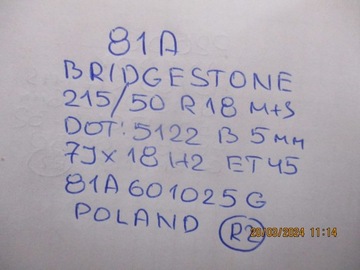 81A
BRIDGESTONE
215/50 R18 M+S
DOT: 5122 B 5мм
7J×18 H2 ET45
81A601025G
POLAND R2
29/03/2024 11:14